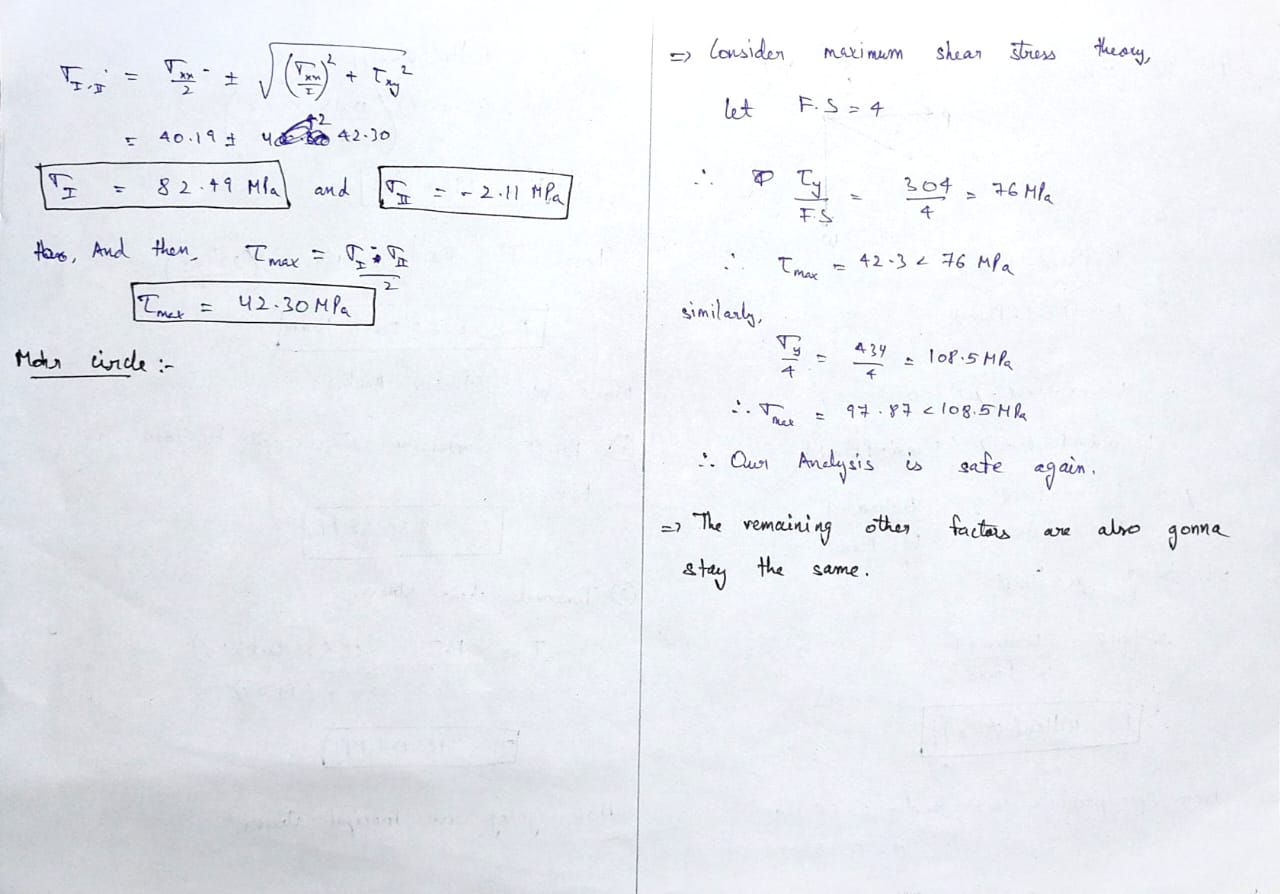 σ_I,II = σ_xx/2 ± √((σ_xx/2)² + τ_xy²)
= 40.19 ± 42.30
σ_I = 82.49 MPa and σ_II = -2.11 MPa
And then, τ_max = (σ_I - σ_II)/2
τ_max = 42.30 MPa
Mohr circle :-
⇒ Consider maximum shear stress theory,
let F.S = 4
∴ τ_y/F.S = 304/4 = 76 MPa
∴ τ_max = 42.3 < 76 MPa
similarly,
σ_y/4 = 434/4 = 108.5 MPa
∴ σ_max = 97.87 < 108.5 MPa
∴ Our Analysis is safe again.
⇒ The remaining other factors are also gonna
stay the same.